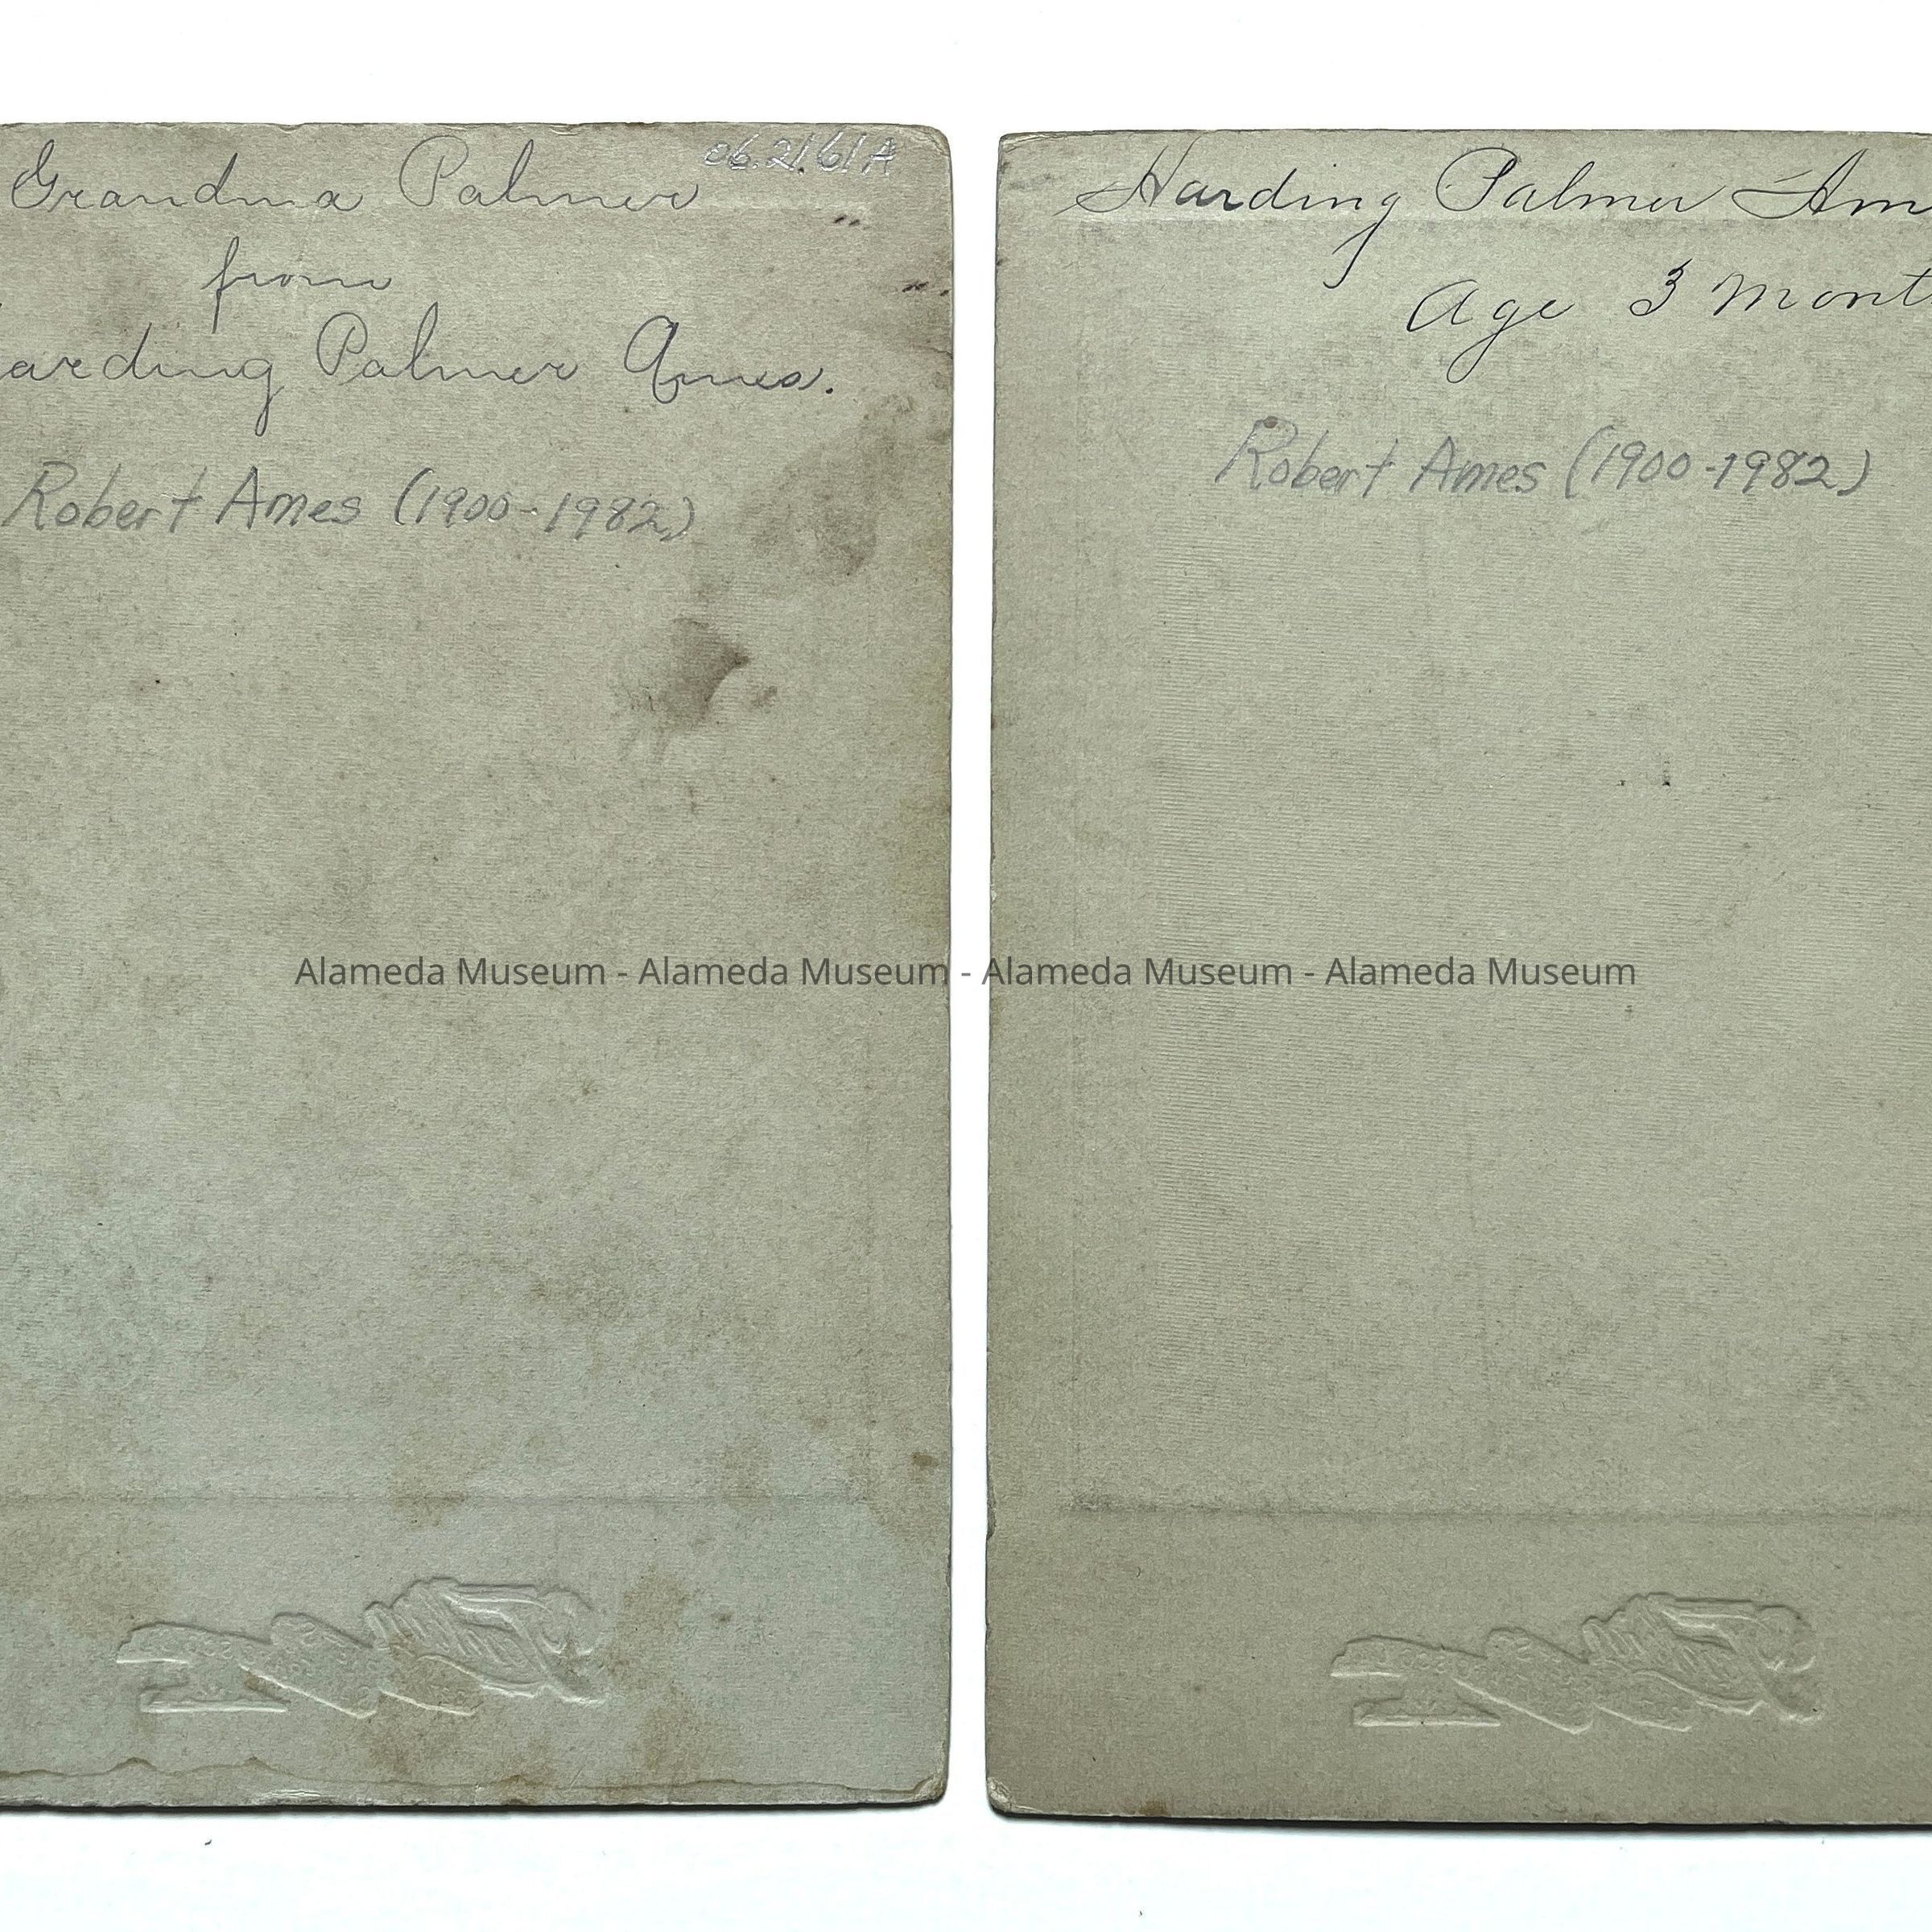 06.21.61A
Grandma Palmer
from
arding Palmer Ames.
Robert Ames (1900-1982)
Harding Palmer Am
Age 3 Mont
Robert Ames (1900-1982)
Alameda Museum - Alameda Museum - Alameda Museum - Alameda Museum